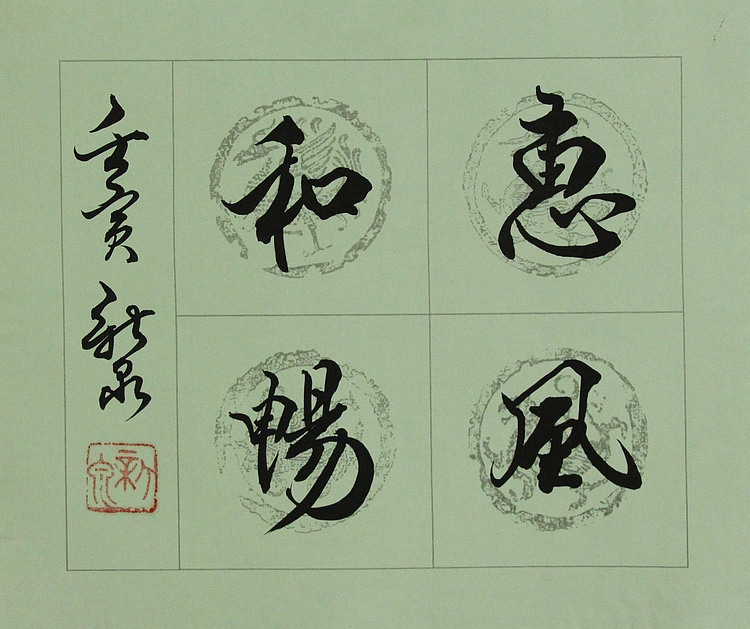 惠風
和暢
壬寅 新泉
新泉